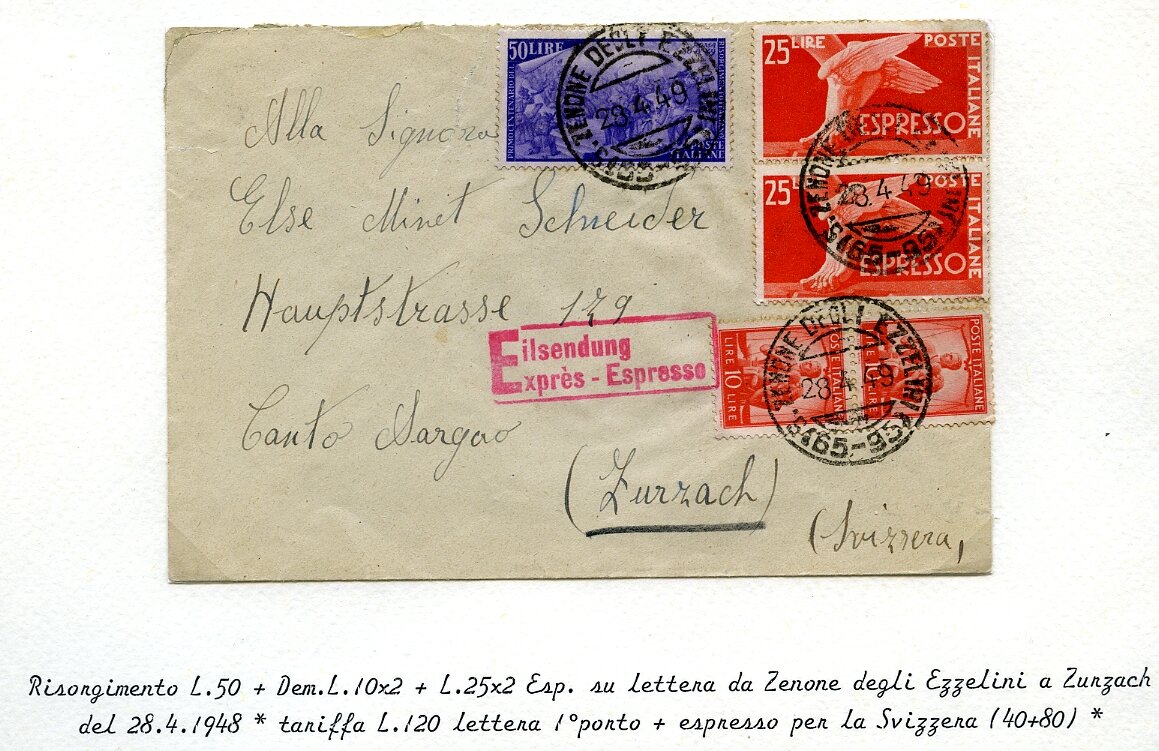 50 LIRE
PRIMO CENTENARIO DEL RISORGIMENTO ITALIANO
POSTE ITALIANE
ZENONE DEGLI EZZELINI
28.4.49
25 LIRE POSTE ITALIANE
ESPRESSO
25 L POSTE ITALIANE
ESPRESSO
ZENONE
28.4.49
(65-95)
Alla Signora
Else Minet Schneider
Hauptstrasse 129
Eilsendung
Exprès - Espresso
LIRE 10 LIRE
POSTE ITALIANE
10 LIRE
POSTE ITALIANE
ZENONE DEGLI EZZELINI
28.4.49
(65-95)
Canto Sargao
(Zurzach)
(Svizzera,
Risorgimento L.50 + Dem.L.10x2 + L.25x2 Esp. su lettera da Zenone degli Ezzelini a Zurzach
del 28.4.1948 * tariffa L.120 lettera 1°porto + espresso per la Svizzera (40+80) *